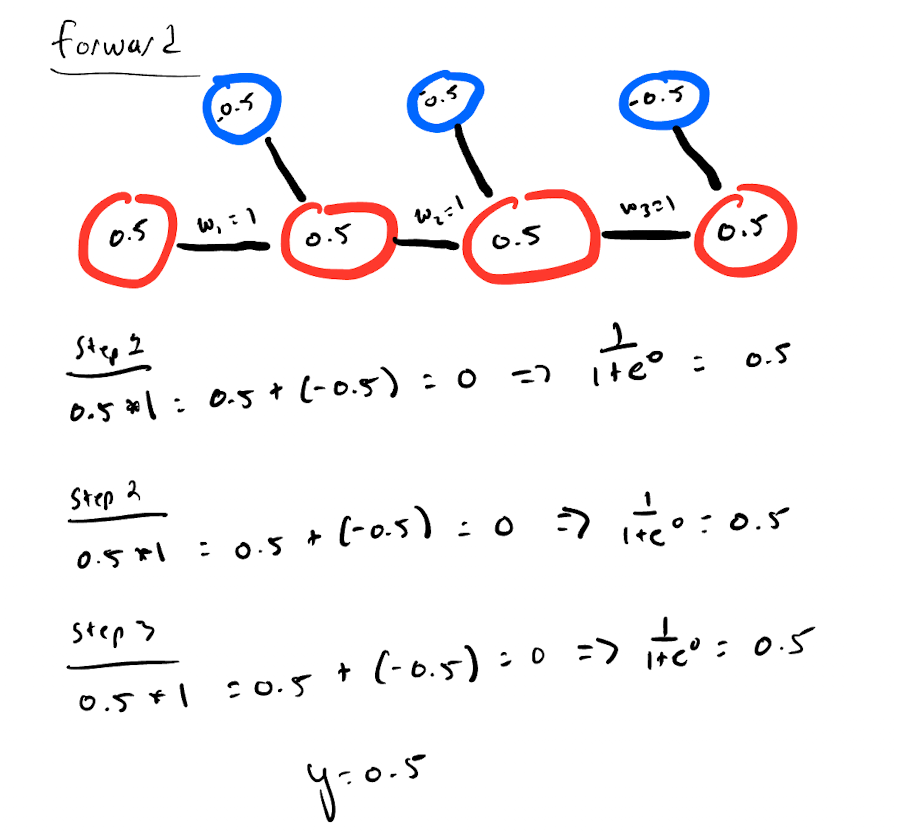 forward
-0.5 -0.5 -0.5
0.5 w₁=1 0.5 w₂=1 0.5 w₃=1 0.5
Step 1
0.5 * 1 = 0.5 + (-0.5) = 0 => 1/(1+e⁰) = 0.5
Step 2
0.5 * 1 = 0.5 + (-0.5) = 0 => 1/(1+e⁰) = 0.5
Step 3
0.5 * 1 = 0.5 + (-0.5) = 0 => 1/(1+e⁰) = 0.5
y = 0.5